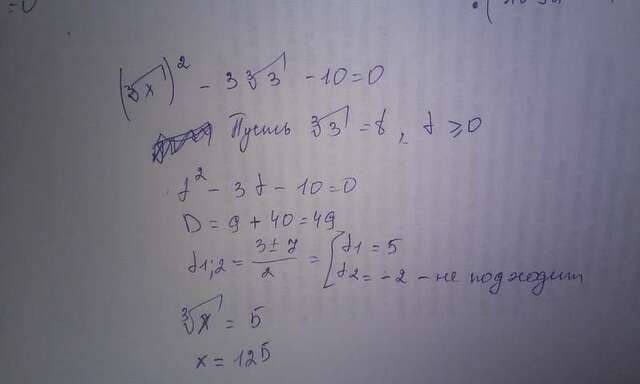 (∛x)² - 3∛3 - 10=0
Пусть ∛3 = t, t ≥ 0
t² - 3t - 10=0
D = 9 + 40 = 49
t1;2 = (3±7)/2 = [t1 = 5
t2 = -2 - не подходит
∛x = 5
x = 125